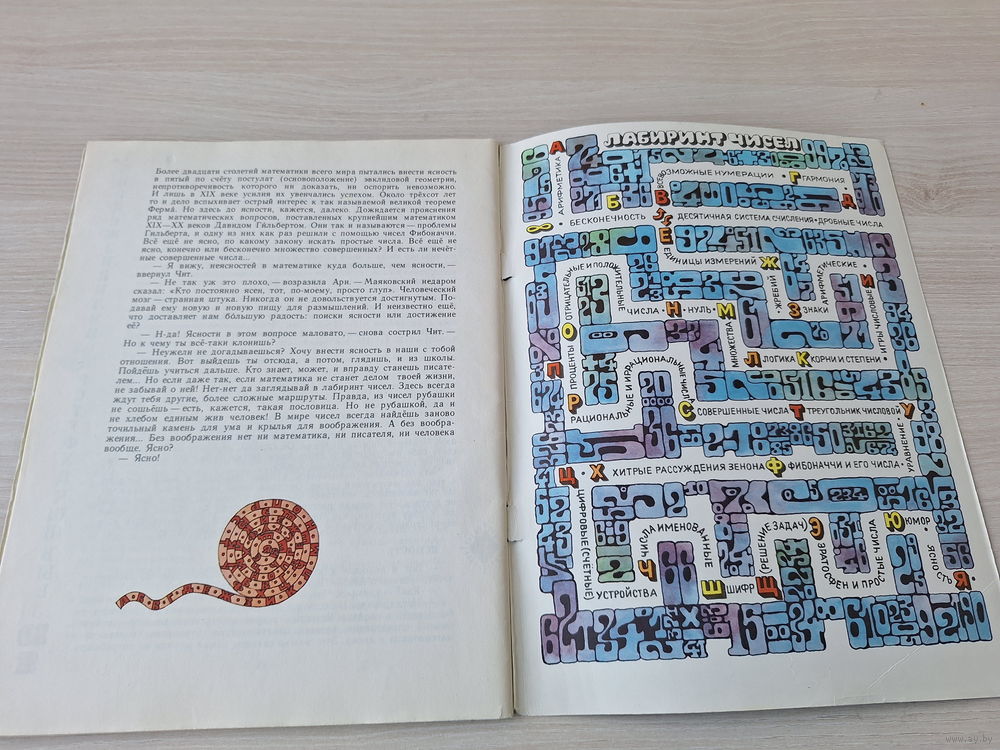 Более двадцати столетий математики всего мира пытались внести ясность
в пятый по счёту постулат (основоположение) эвклидовой геометрии,
непротиворечивость которого ни доказать, ни оспорить невозможно.
И лишь в XIX веке усилия их увенчались успехом. Около трёхсот лет
то и дело вспыхивает острый интерес к так называемой великой теореме
Ферма. Но здесь до ясности, кажется, далеко. Дожидается прояснения
ряд математических вопросов, поставленных крупнейшим математиком
XIX—XX веков Давидом Гильбертом. Они так и называются — проблемы
Гильберта, и одну из них как раз решили с помощью чисел Фибоначчи.
Всё ещё не ясно, по какому закону искать простые числа. Всё ещё не
ясно, конечно или бесконечно множество совершенных? И есть ли нечёт-
ные совершенные числа...
— Я вижу, неясностей в математике куда больше, чем ясности, —
ввернул Чит.
— Не так уж это плохо, — возразила Ари. — Маяковский недаром
сказал: «Кто постоянно ясен, тот, по-моему, просто глуп». Человеческий
мозг — странная штука. Никогда он не довольствуется достигнутым. По-
давай ему новую и новую пищу для размышлений. И неизвестно ещё,
что доставляет нам бо́льшую радость: поиски ясности или достижение
её?
— Н-да! Ясности в этом вопросе маловато, — снова сострил Чит. —
Но к чему ты всё-таки клонишь?
— Неужели не догадываешься? Хочу внести ясность в наши с тобой
отношения. Вот выйдешь ты отсюда, а потом, глядишь, и из школы.
Пойдёшь учиться дальше. Кто знает, может, и вправду станешь писате-
лем... Но если даже так, если математика не станет делом твоей жизни,
не забывай о ней! Нет-нет да заглядывай в лабиринт чисел. Здесь всегда
ждут тебя другие, более сложные маршруты. Правда, из чисел рубашки
не сошьёшь — есть, кажется, такая пословица. Но не рубашкой, да и
не хлебом единым жив человек! В мире чисел всегда найдёшь заново
точильный камень для ума и крылья для воображения. А без вообра-
жения... Без воображения нет ни математика, ни писателя, ни человека
вообще. Ясно?
— Ясно!
ЛАБИРИНТ ЧИСЕЛ
АРИФМЕТИКА
БЕСКОНЕЧНОСТЬ
ВСЕВОЗМОЖНЫЕ НУМЕРАЦИИ
ГАРМОНИЯ
ДЕСЯТИЧНАЯ СИСТЕМА СЧИСЛЕНИЯ • ДРОБНЫЕ ЧИСЛА
ЕДИНИЦЫ ИЗМЕРЕНИЙ
ЖРЕБИЙ
ЗНАКИ АРИФМЕТИЧЕСКИЕ
ИГРЫ ЧИСЛОВЫЕ
КОРНИ И СТЕПЕНИ
ЛОГИКА
МНОЖЕСТВА
НУЛЬ
ОТРИЦАТЕЛЬНЫЕ И ПОЛОЖИТЕЛЬНЫЕ ЧИСЛА
ПРОЦЕНТЫ
РАЦИОНАЛЬНЫЕ И ИРРАЦИОНАЛЬНЫЕ ЧИСЛА
СОВЕРШЕННЫЕ ЧИСЛА
ТРЕУГОЛЬНИК ЧИСЛОВОЙ
УРАВНЕНИЕ
ФИБОНАЧЧИ И ЕГО ЧИСЛА
ХИТРЫЕ РАССУЖДЕНИЯ ЗЕНОНА
ЦИФРОВЫЕ (СЧЁТНЫЕ) УСТРОЙСТВА
ЧИСЛА ИМЕНОВАННЫЕ
ШИФР
Щ (РЕШЕНИЕ ЗАДАЧ)
ЭРАТОСФЕН И ПРОСТЫЕ ЧИСЛА
ЮМОР
ЯСНОСТЬ
www.ay.by